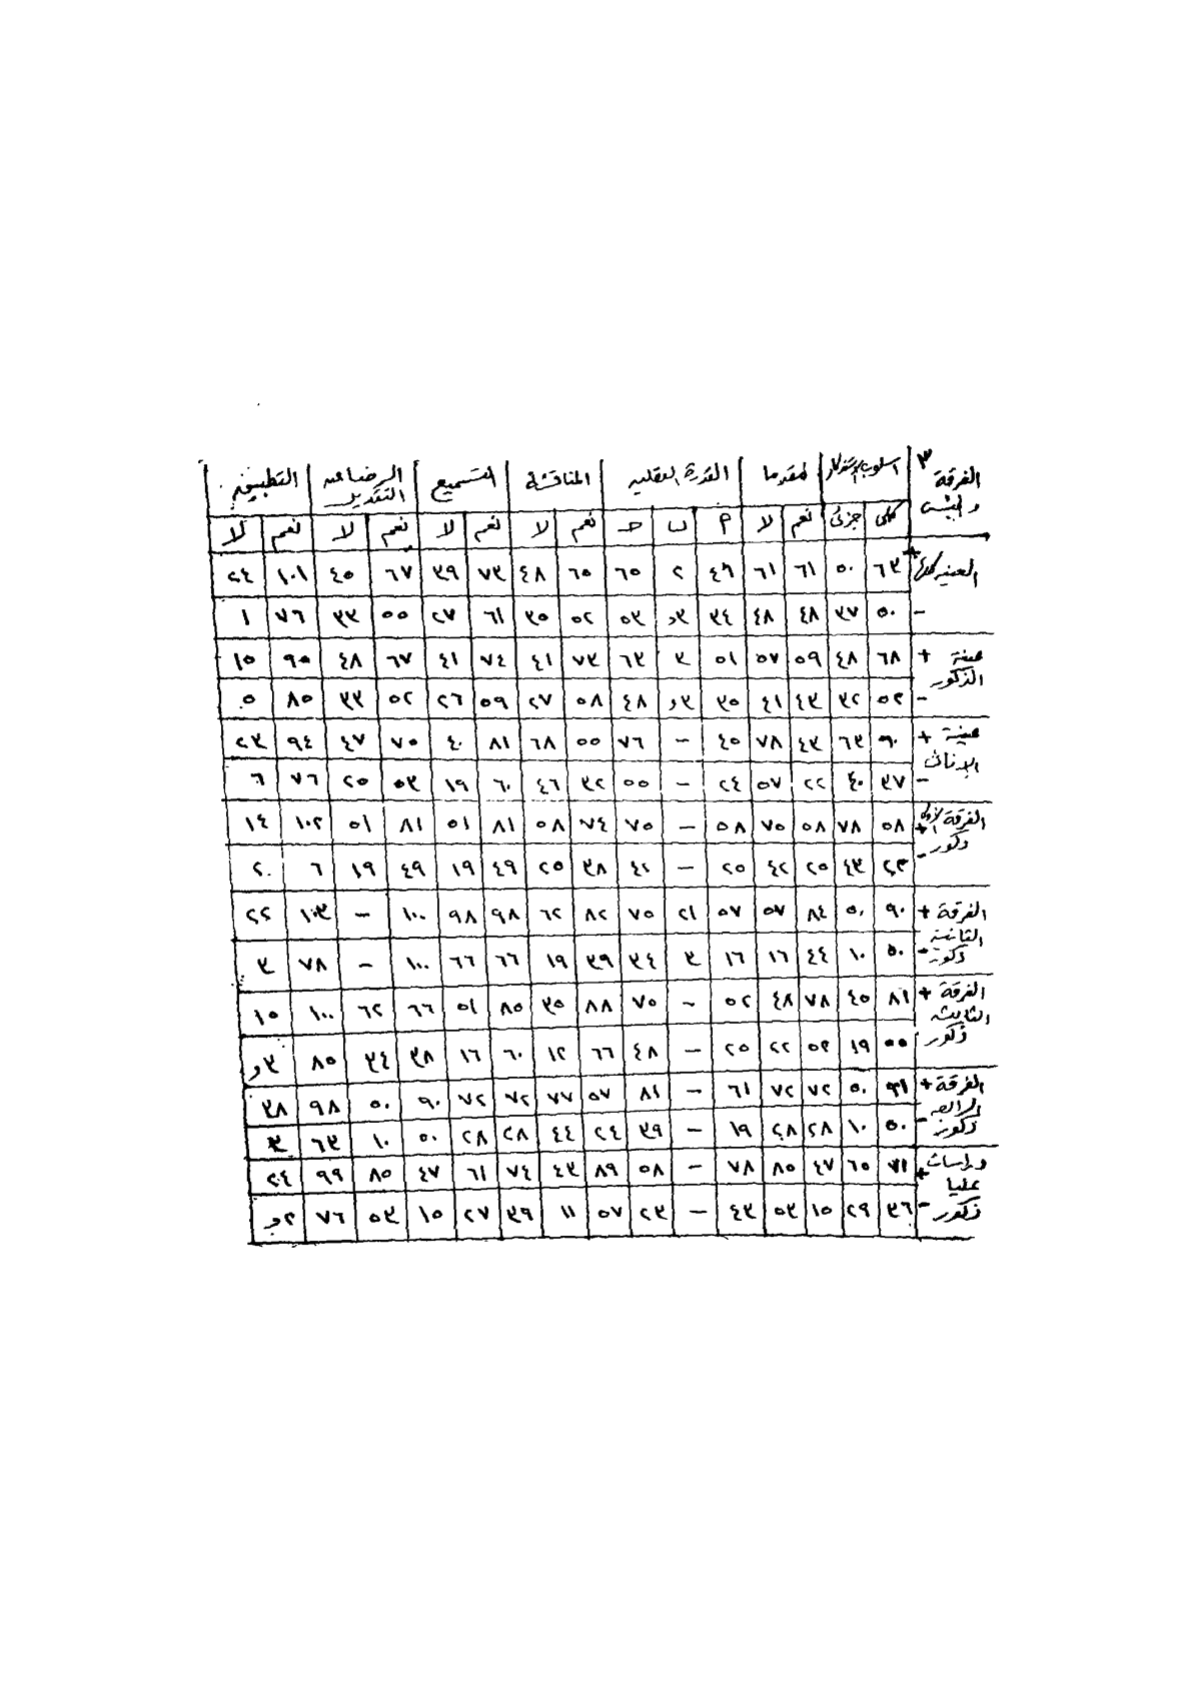 ٣
الفرقة والجنس | اسلوب الاستذكار | مقدما | القدرة العقلية | المناقشة | التسميع | الرضا عن التقدير | التطبيق
كلى | جزئ | نعم | لا | م | ب | حـ | نعم | لا | نعم | لا | نعم | لا | نعم | لا
العينه كلها + | ٦٣ | ٥٠ | ٦١ | ٦١ | ٤٦ | ٢ | ٦٥ | ٦٥ | ٤٨ | ٧٣ | ٣٩ | ٦٧ | ٤٥ | ١٠١ | ٢٤
- | ٥٠ | ٣٧ | ٤٨ | ٤٨ | ٣٤ | ٣و | ٥٣ | ٥٢ | ٣٥ | ٦١ | ٢٧ | ٥٥ | ٣٣ | ٧٦ | ١
عينة الذكور + | ٦٨ | ٤٨ | ٥٩ | ٥٧ | ٥١ | ٣ | ٦٣ | ٧٣ | ٤١ | ٧٤ | ٤١ | ٦٧ | ٤٨ | ٩٥ | ١٥
- | ٥٢ | ٣٢ | ٤٣ | ٤١ | ٣٥ | ٣و | ٤٨ | ٥٨ | ٢٧ | ٥٩ | ٢٦ | ٥٢ | ٣٣ | ٨٥ | ٥
عينة الإناث + | ٩٠ | ٦٣ | ٤٣ | ٧٨ | ٤٥ | – | ٧٦ | ٥٥ | ٦٨ | ٨١ | ٤٠ | ٧٥ | ٤٧ | ٩٤ | ٢٣
- | ٣٧ | ٤٠ | ٢٢ | ٥٧ | ٢٤ | – | ٥٥ | ٣٢ | ٤٦ | ٦٠ | ١٩ | ٥٣ | ٢٥ | ٧٦ | ٦
الفرقة الأولى ذكور + | ٥٨ | ٧٨ | ٥٨ | ٧٥ | ٥٨ | – | ٧٥ | ٧٤ | ٥٨ | ٨١ | ٥١ | ٨١ | ٥١ | ١٠٢ | ١٤
- | ٢٣ | ٤٣ | ٢٥ | ٤٢ | ٢٥ | – | ٤١ | ٣٨ | ٢٥ | ٤٩ | ١٩ | ٤٩ | ١٩ | ٦ | ٢٠
الفرقة الثانية ذكور + | ٩٠ | ٥٠ | ٨٤ | ٥٧ | ٥٧ | ٢١ | ٧٥ | ٨٢ | ٦٢ | ٩٨ | ٩٨ | ١٠٠ | – | ١٠٣ | ٢٢
- | ٥٠ | ١٠ | ٤٤ | ١٦ | ١٦ | ٣ | ٣٤ | ٣٩ | ١٩ | ٦٦ | ٦٦ | ١٠٠ | – | ٧٨ | ٣
الفرقة الثالثه ذكور + | ٨١ | ٤٥ | ٧٨ | ٤٨ | ٥٢ | – | ٧٥ | ٨٨ | ٣٥ | ٨٥ | ٥١ | ٦٦ | ٦٢ | ١٠٠ | ١٥
- | ٥٥ | ١٩ | ٥٢ | ٢٢ | ٢٥ | – | ٤٨ | ٦٦ | ١٢ | ٦٠ | ١٦ | ٣٨ | ٣٤ | ٨٥ | ٣و
الفرقة الرابعه ذكور + | ٩١ | ٥٠ | ٧٢ | ٧٢ | ٦١ | – | ٨١ | ٥٧ | ٧٧ | ٧٢ | ٧٢ | ٩٠ | ٥٠ | ٩٨ | ٣٨
- | ٥٠ | ١٠ | ٢٨ | ٢٨ | ١٩ | – | ٣٩ | ٢٤ | ٤٤ | ٢٨ | ٢٨ | ٥٠ | ١٠ | ٦٣ | ٣
دراسات عليا ذكور + | ٧١ | ٦٥ | ٤٧ | ٨٥ | ٧٨ | – | ٥٨ | ٨٩ | ٤٣ | ٧٤ | ٦١ | ٤٧ | ٨٥ | ٩٩ | ٢٤
- | ٣٦ | ٢٩ | ١٥ | ٥٣ | ٤٣ | – | ٢٣ | ٥٧ | ١١ | ٣٩ | ٢٧ | ١٥ | ٥٣ | ٧٦ | ٢و